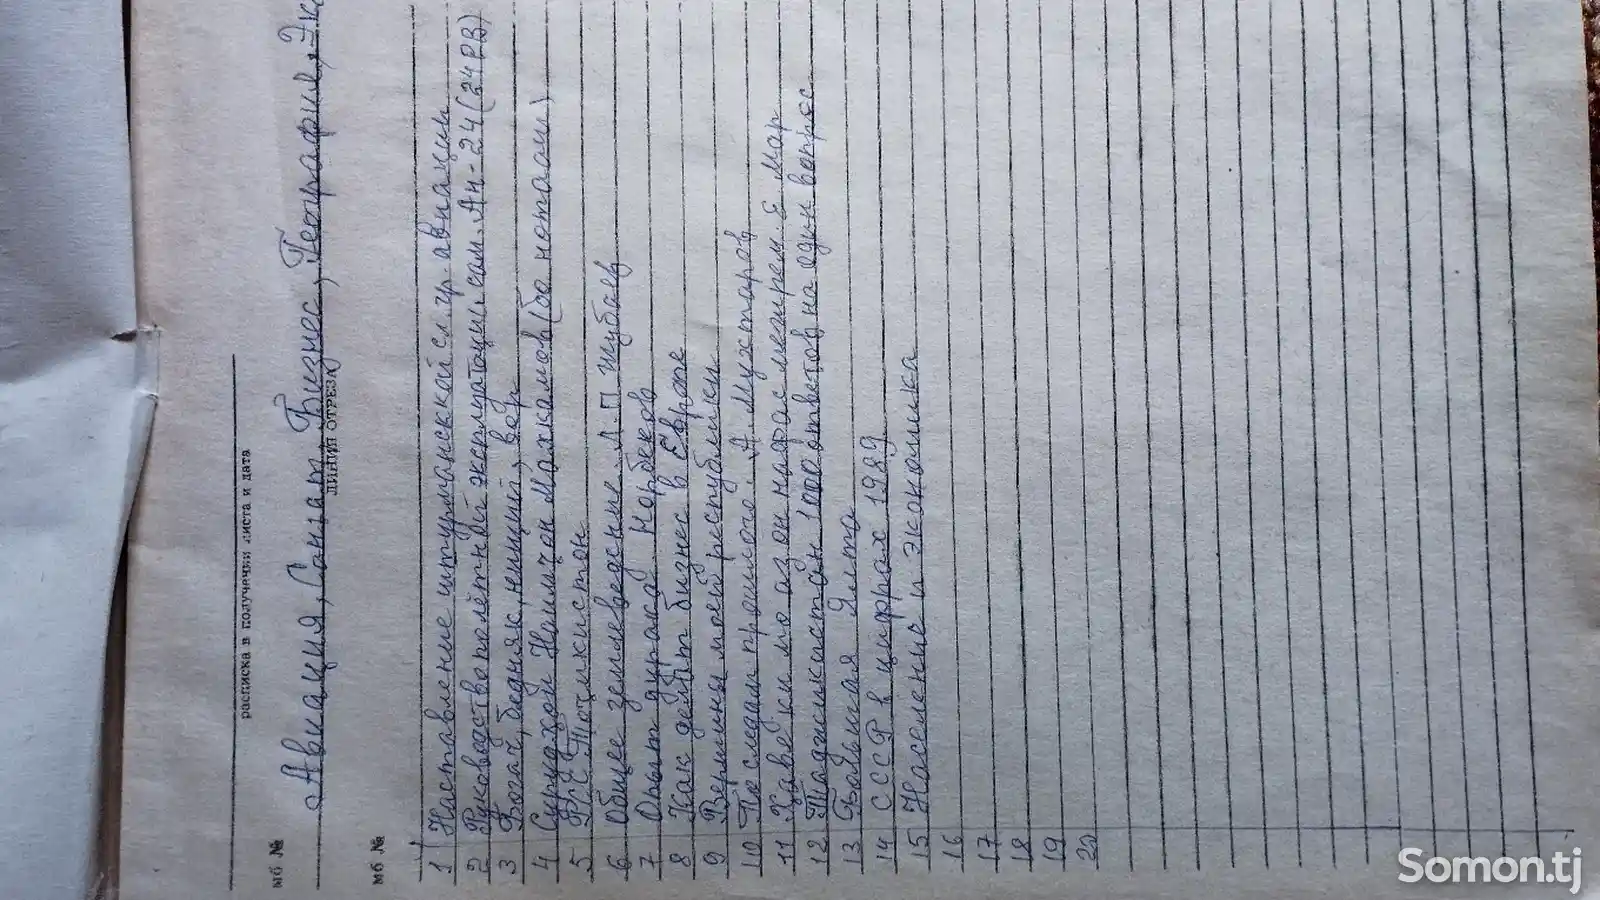 расписка в получении листа и дата
мб №
Авиация, Санъат, Бизнес, География, Эко
ЛИНИЯ ОТРЕЗА
мб №
1 Наставление штурманской сл. гр. авиации
2 Руководство по лётной эксплуатации сам. Ан-24 (24РВ)
3 Богач, бедняк, нищий, вор
4 Сурудхои Наимчон Махкамов (бо нотаош)
5 Точикистон
6 Общее земледелие. Л.П Шубаев
7 Опыт дурака Норбеков
8 Как делают бизнес в Европе
9 Вершины моей республики
10 По следам прошлого. А Мухтаров
11 Хавое ки мо аз он нафас мегирем. Е Мар
12 Таджикистан 1000 ответов на один вопрос
13 Большая Ялта
14 СССР в цифрах 1989
15 Население и экономика
16
17
18
19
20
Somon.tj